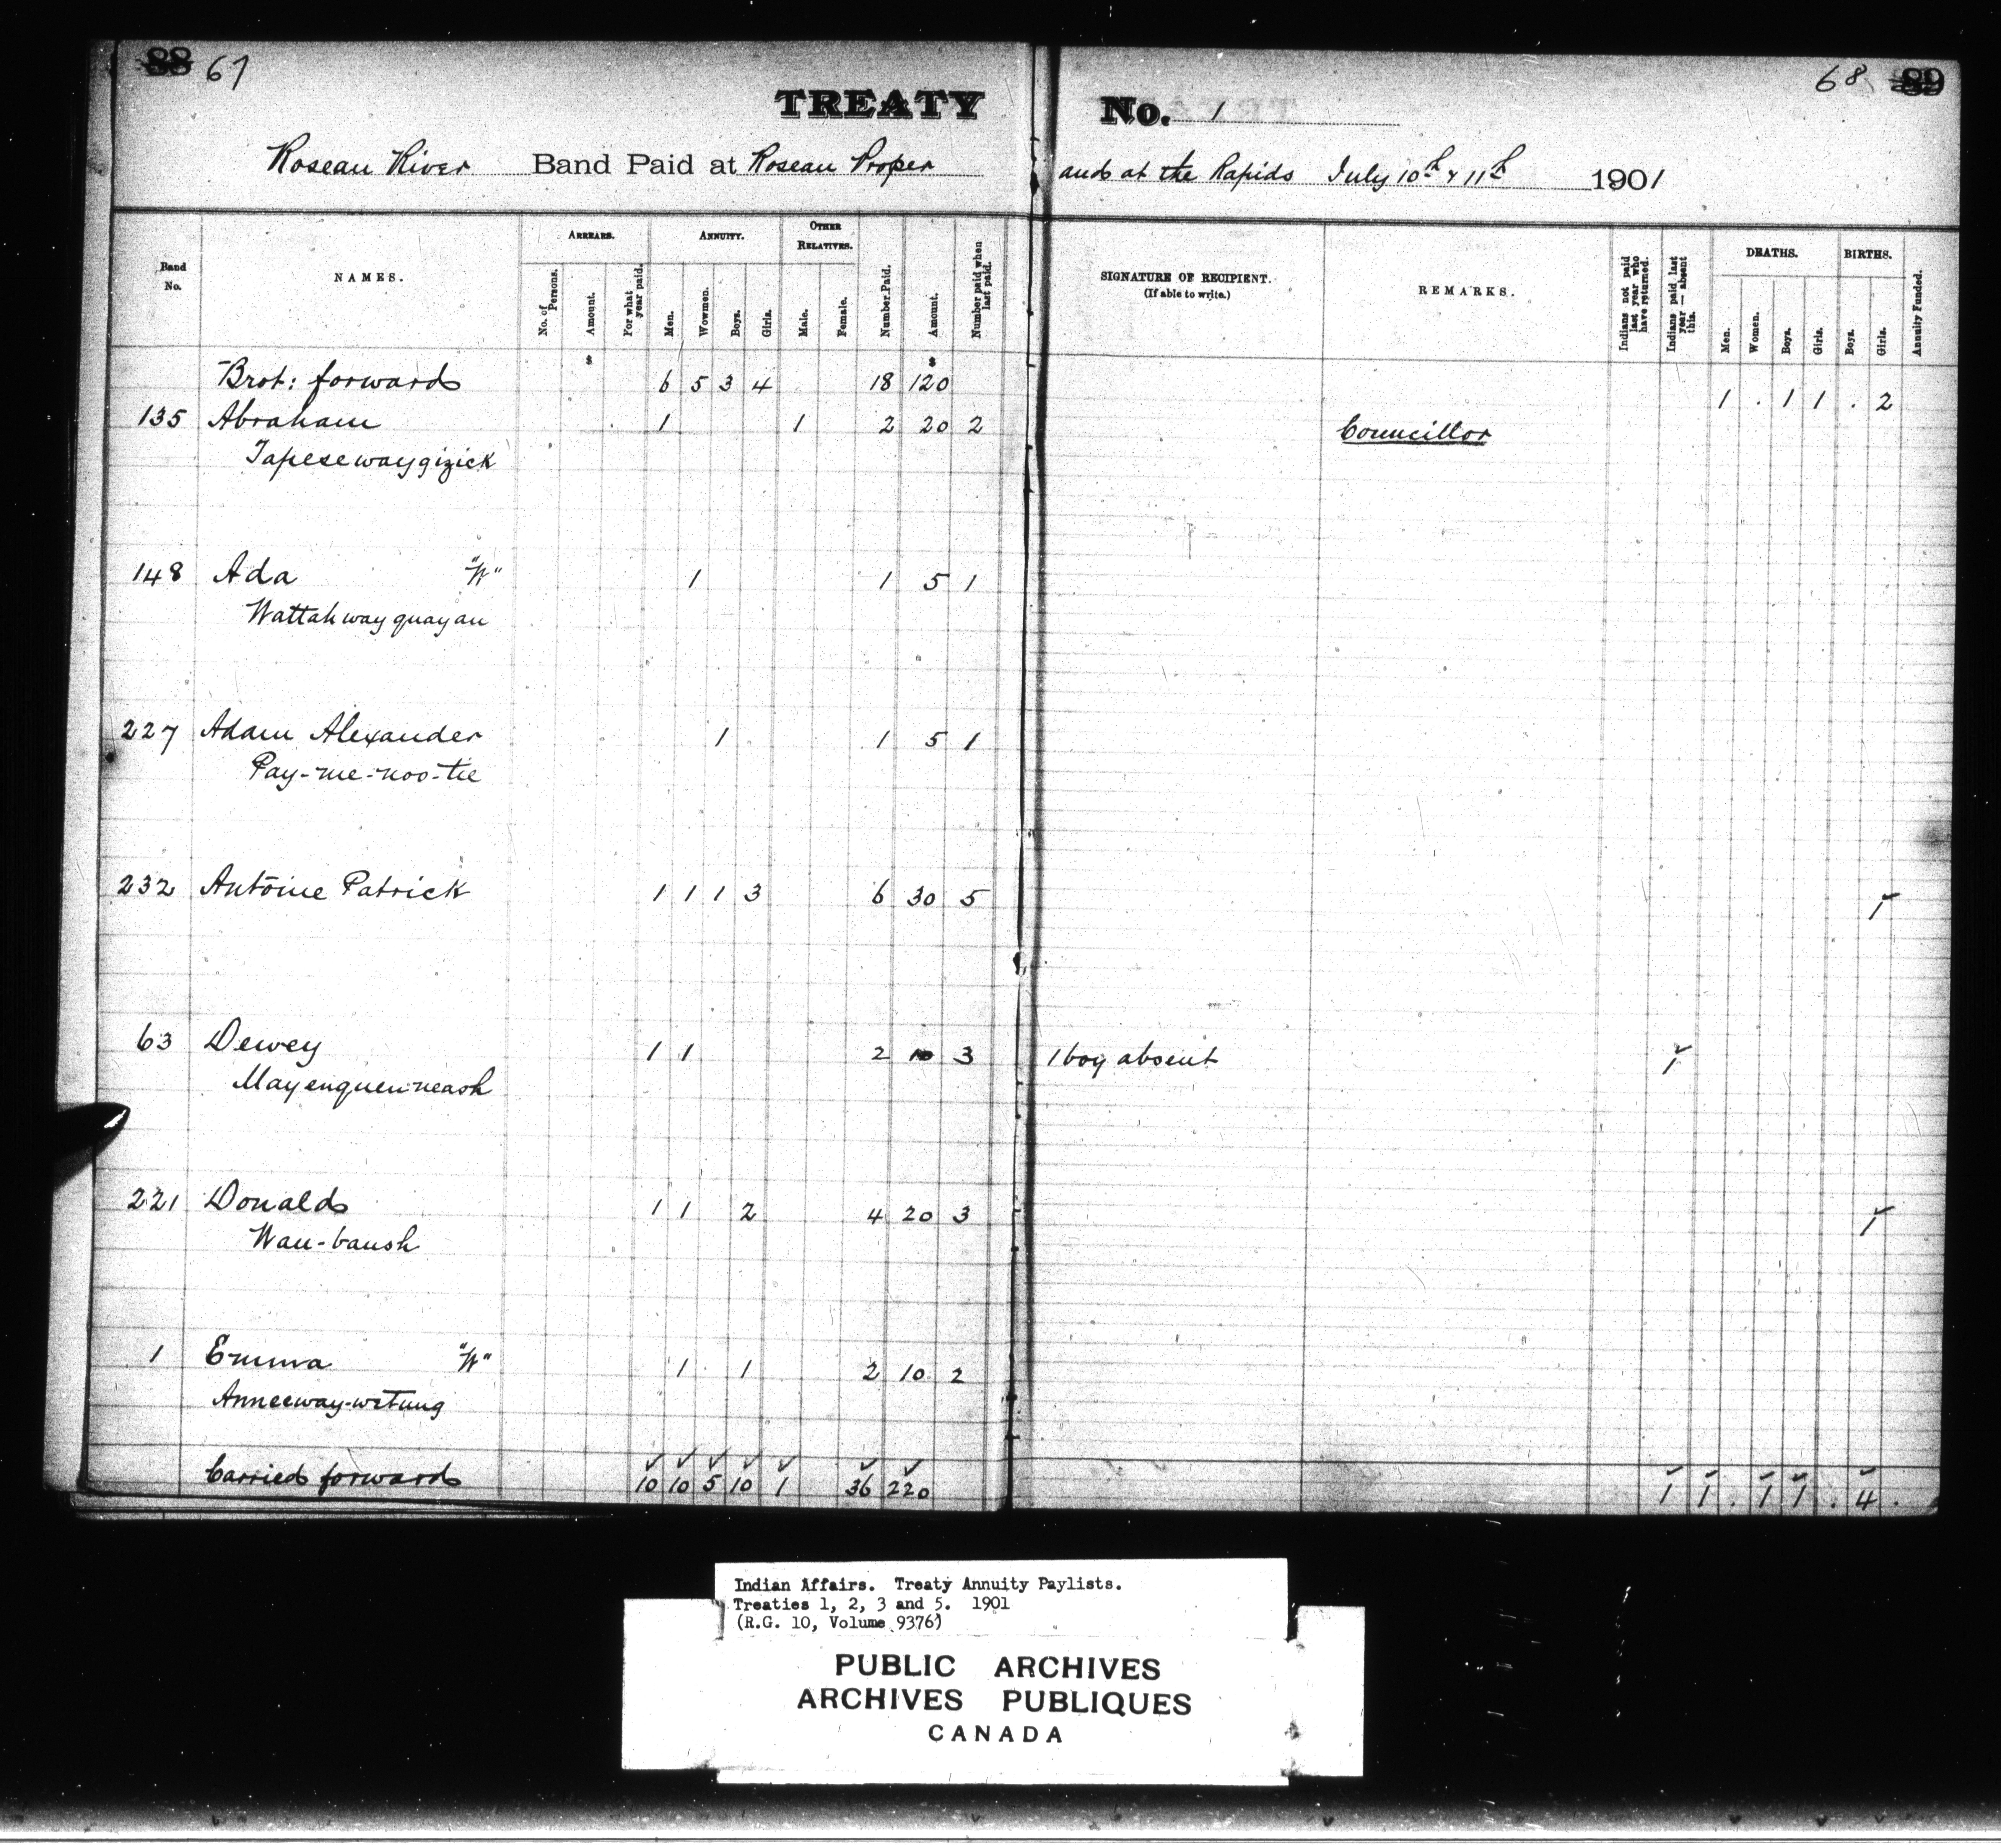 88 67
TREATY No. 1
68 89
Roseau River Band Paid at Roseau Proper and at the Rapids July 10th & 11th 1901
Band No.
NAMES.
ARREARS.
No. of Persons.
Amount.
For what year paid.
ANNUITY.
Men.
Wowmen.
Boys.
Girls.
OTHER RELATIVES.
Male.
Female.
Number Paid.
Amount.
Number paid when last paid.
SIGNATURE OF RECIPIENT.
(If able to write.)
REMARKS.
Indians not paid last year who have returned.
Indians paid last year — absent this.
DEATHS.
Men.
Women.
Boys.
Girls.
BIRTHS.
Boys.
Girls.
Annuity Funded.
$ $
Brot: forward 6 5 3 4 18 120 1 . 1 1 . 2
135 Abraham 1 1 2 20 2 Councillor
Tapesewaygizick
148 Ada "W" 1 1 5 1
Wattahwayquayan
227 Adam Alexander 1 1 5 1
Pay-me-noo-tee
232 Antoine Patrick 1 1 1 3 6 30 5 1
63 Dewey 1 1 2 10 3 1 boy absent 1
Mayenquen-neash
221 Donald 1 1 2 4 20 3 1
Wau-baush
1 Emma "W" 1 1 2 10 2
Anneeway-wetung
Carried forward 10 10 5 10 1 36 220 1 1 . 1 1 . 4 .
Indian Affairs. Treaty Annuity Paylists.
Treaties 1, 2, 3 and 5. 1901
(R.G. 10, Volume 9376)
PUBLIC ARCHIVES
ARCHIVES PUBLIQUES
CANADA